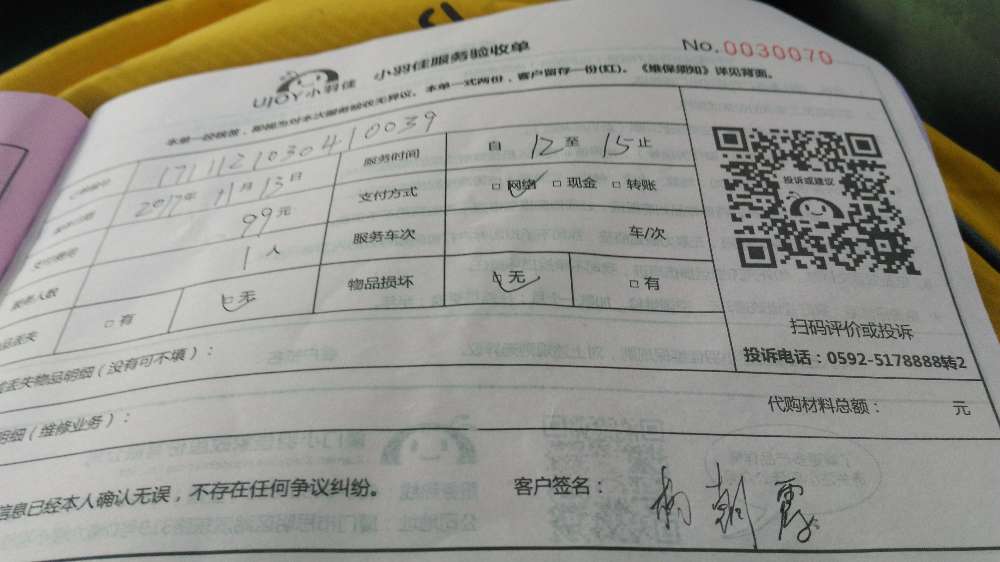 UJOY小羽佳 小羽佳服务验收单 No.0030070
本次服务验收无异议。本单一式两份,客户留存一份(红)。《维保须知》详见背面。
171112103041 0039 服务时间 自 12 至 15 止
2017年 11月 13日 支付方式 □网络 □现金 □转账
99元 服务车次 车/次
服务人数 1人 物品损坏 □无 □有
□有 □无
投诉或建议
扫码评价或投诉
投诉电话:0592-5178888转2
丢失物品明细(没有可不填):
代购材料总额: 元
明细(维修业务):
信息已经本人确认无误,不存在任何争议纠纷。 客户签名: